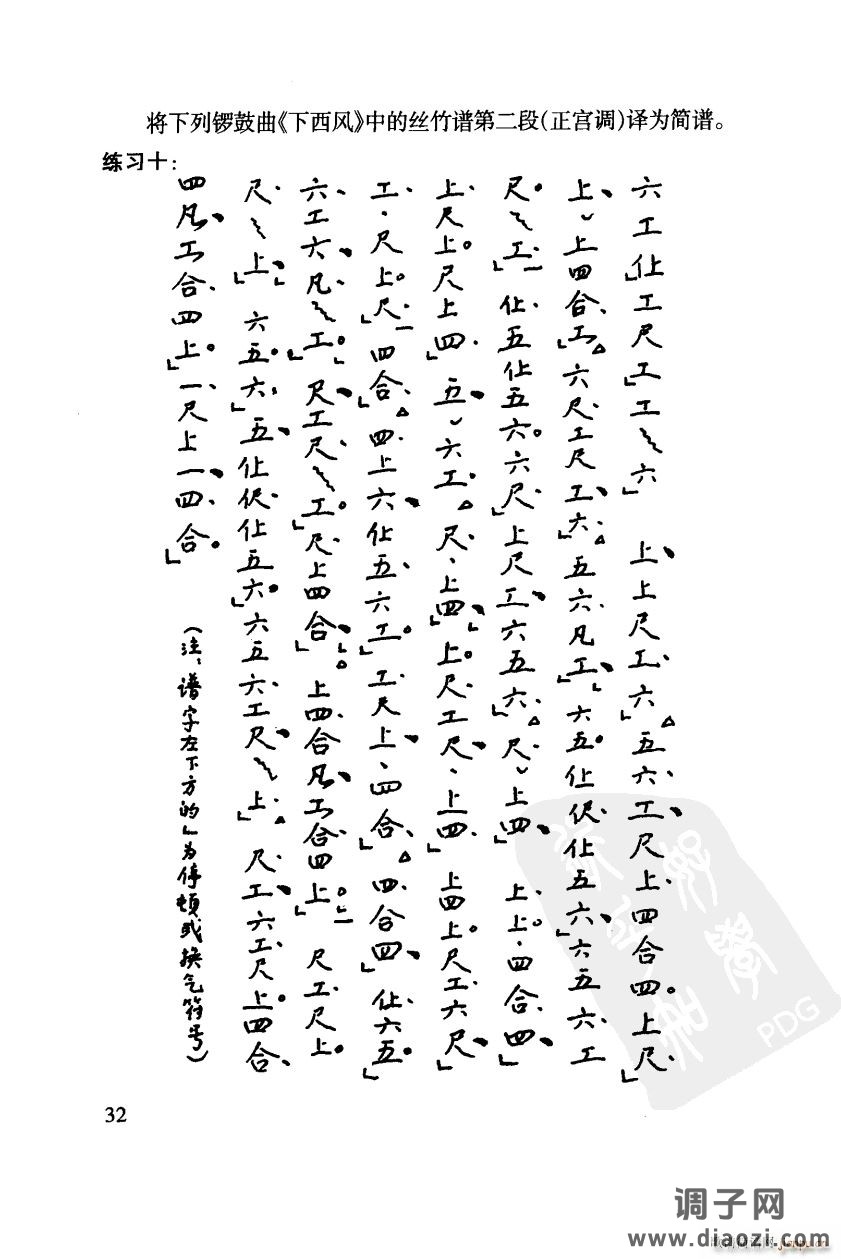 将下列锣鼓曲《下西风》中的丝竹谱第二段(正宫调)译为简谱。
练习十:
六工仩工尺工工六 上上尺工六五六工尺上四合四上尺
上上四合工六尺工尺工六五六凡工六五仩伬仩五六六五六工
尺工仩五仩五六六尺上尺工六五六尺上四 上上四合四
上尺上尺上四五六工尺上四上尺工尺上四 上四上尺工六尺
工尺上尺四合四上六仩五六工工尺上四合 四合四仩六五
六工六凡工尺工尺工尺上四合 上四合凡工合四上 尺工尺上
尺上 六五六五仩伬仩五六六五六工尺上 尺工六工尺上四合
四凡工合四上一尺上一四合
(注:谱字左下方的"」"为停顿或换气符号)
32
PDG
调子网
www.diaozi.com